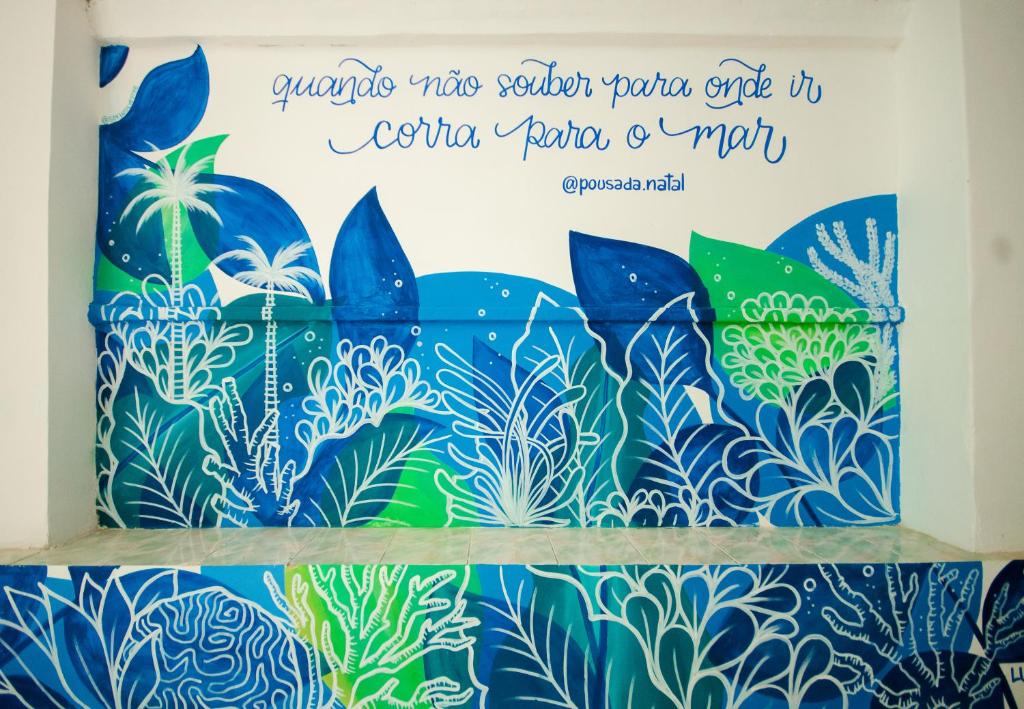 quando não souber para onde ir
corra para o mar
@pousada.natal